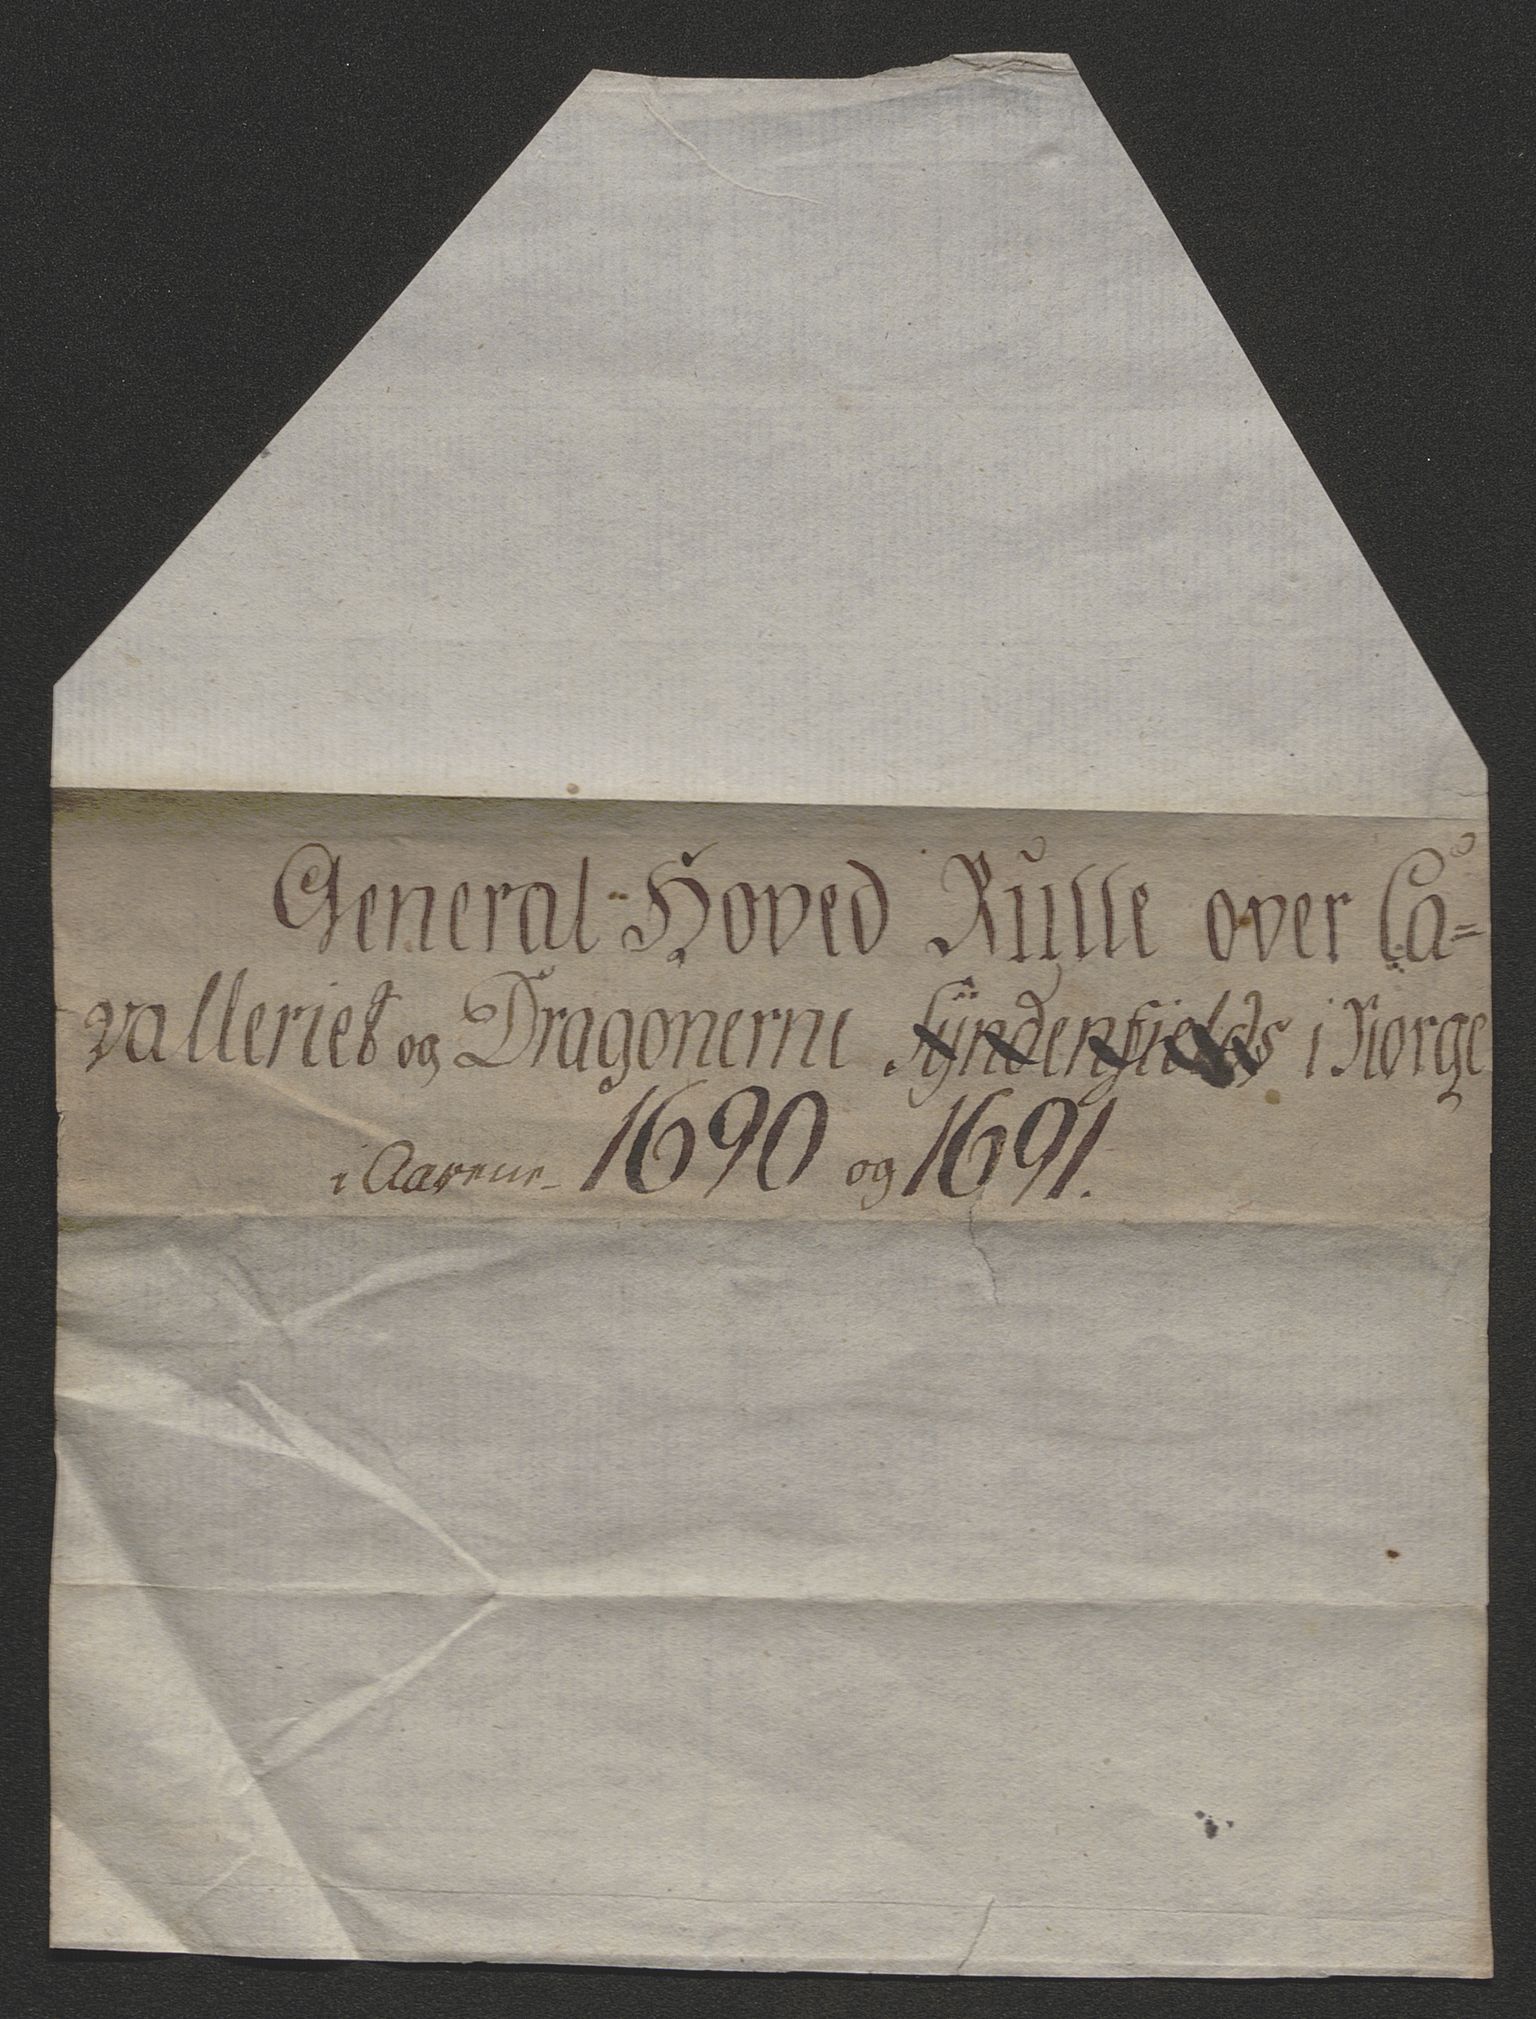 General Hoved Rulle over Ca=
valleriet og Dragonerne Syndenfields i Norge
i Aarene 1690 og 1691.